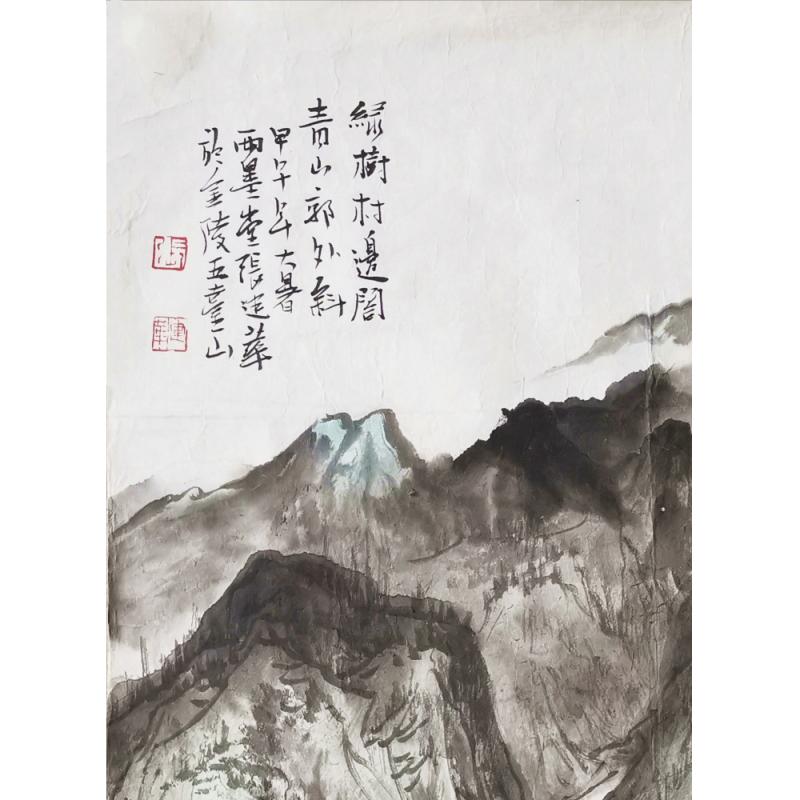 緑樹村邊閤
青山郭外斜
甲午年大暑
兩墨堂張建華
於金陵五臺山
張
建華